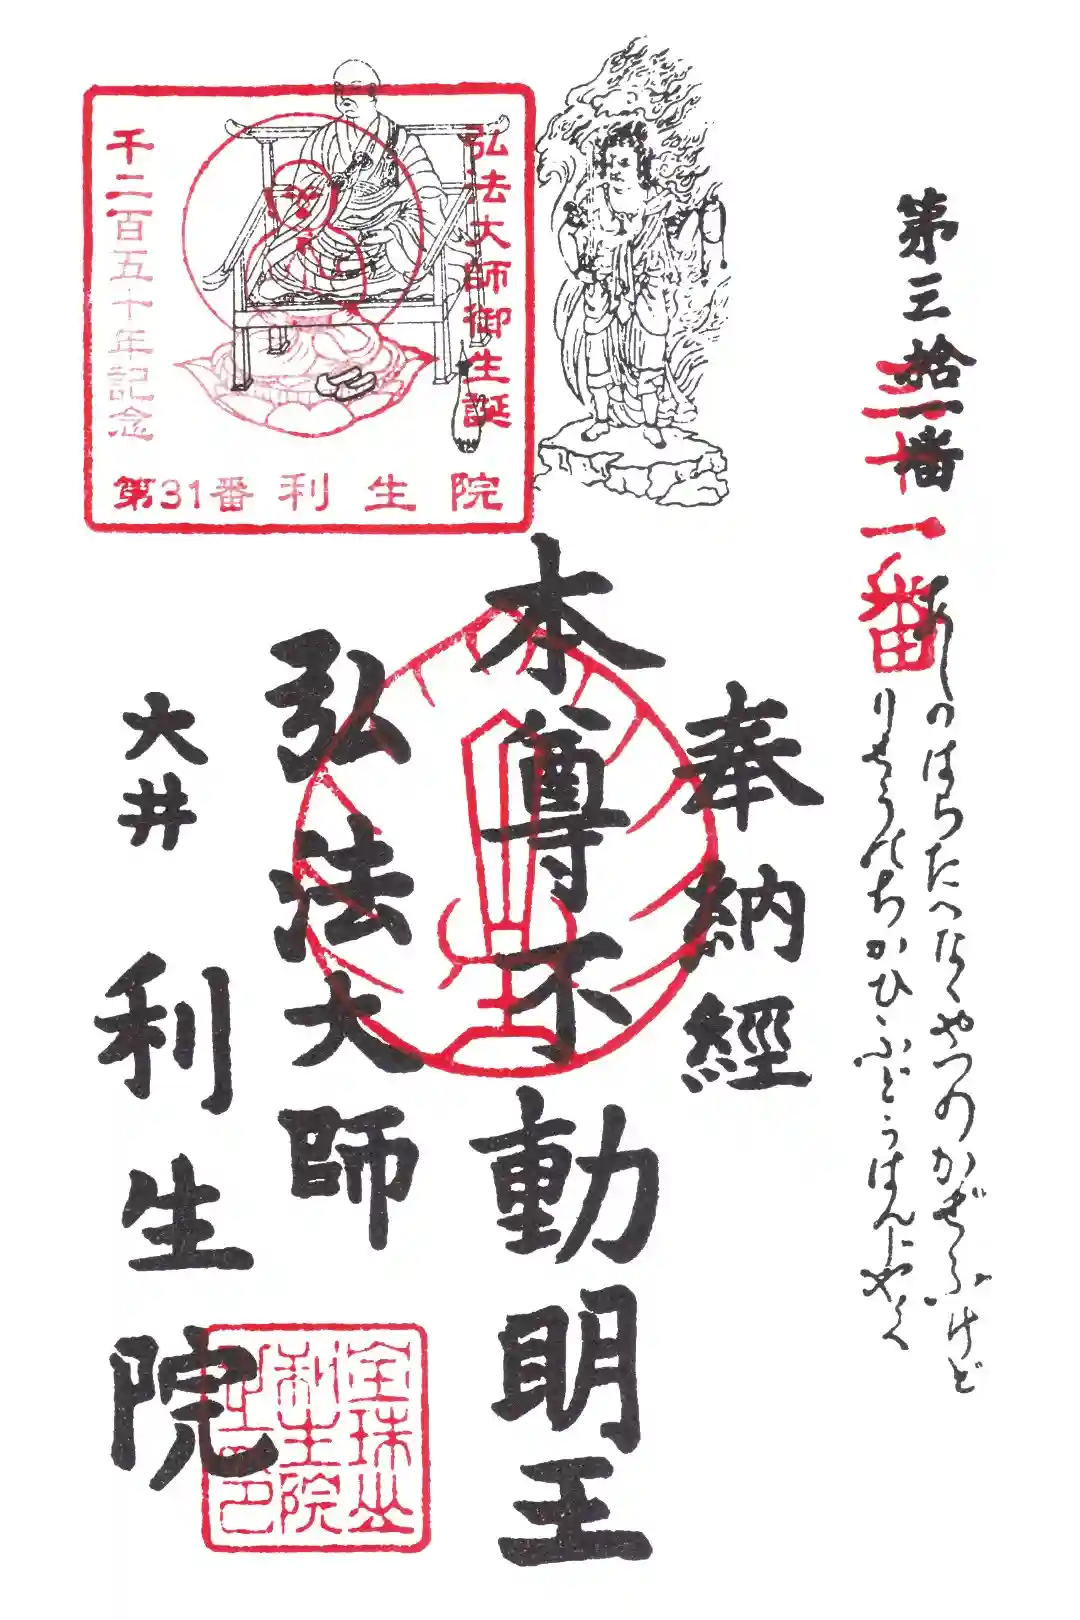 第三拾一番
三十一番
あしのはらたへなくやつのかぜふけど
りせうのちかひふどうはんじやく
奉納經
本尊不動明王
弘法大師
大井 利生院
弘法大師御生誕
千二百五十年記念
第31番 利生院
利生院